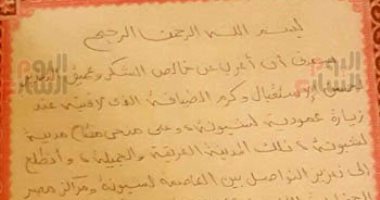 بسم الله الرحمن الرحيم
يسعدنى أن أعرب عن خالص الشكر وعميق التقدير
لحسن الإستقبال وكرم الضيافة الذى لاقيته عند
زيارة عمودية لشبونة، وعلى منحى مفتاح مدينة
لشبونة، تلك المدينة العريقة والجميلة، وأتطلع
إلى تعزيز التواصل بين العاصمة لشبونة ومراكز مصر
اليوم السابع